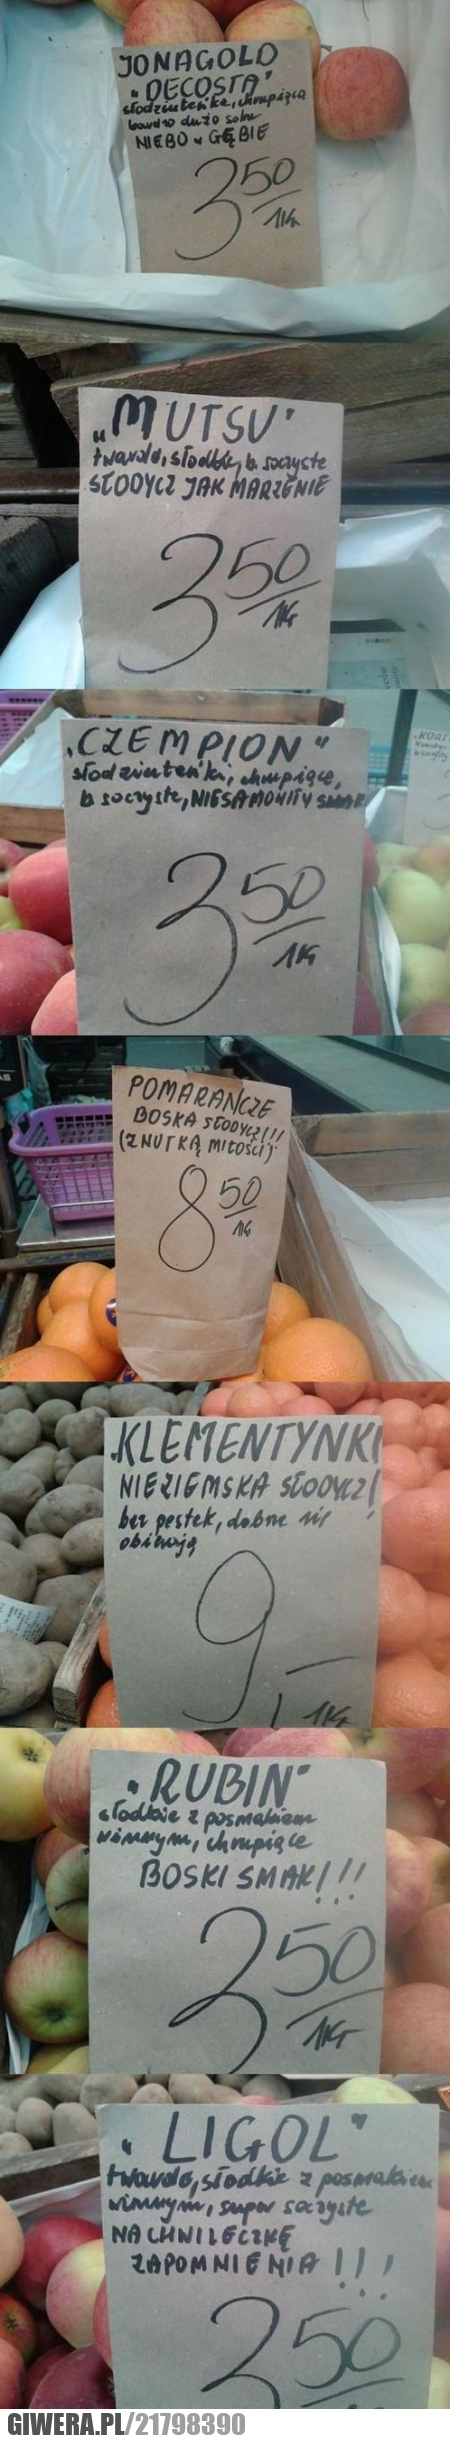 JONAGOLD
"DECOSTA"
słodziuteńkie, chrupiące
bardzo dużo soku
NIEBO w GĘBIE
3 50
1KG
„MUTSU"
twarde, słodkie, b. soczyste
SŁODYCZ JAK MARZENIE
3 50
1KG
„CZEMPION"
słodziuteńki, chrupiące,
b soczyste, NIESAMOWITY SMAK
3 50
1KG
POMARAŃCZE
BOSKA SŁODYCZ!!!
(Z NUTKĄ MIŁOŚCI)
8 50
1KG
KLEMENTYNKI
NIEZIEMSKA SŁODYCZ!
bez pestek, dobrze się
obierają
9,-
1KG
"RUBIN"
słodkie z posmakiem
winnym, chrupiące
BOSKI SMAK!!!
3 50
1KG
"LIGOL"
twarde, słodkie z posmakiem
winnym, super soczyste
NA CHWILECZKĘ
ZAPOMNIENIA!!!
3 50
GIWERA.PL/21798390